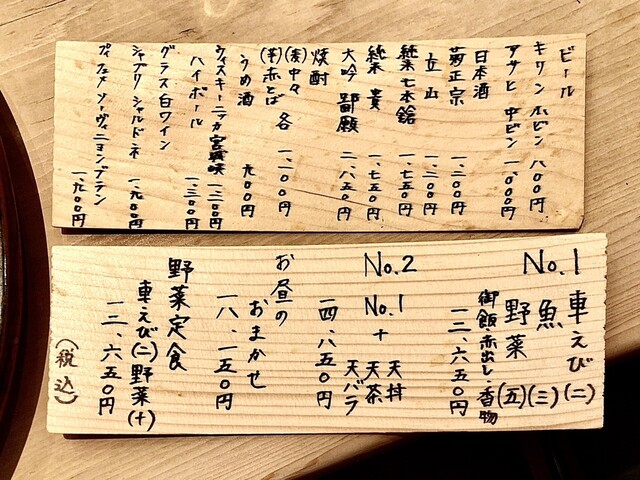 ビール
キリン 小ビン 八〇〇円
アサヒ 中ビン 一、〇〇〇円
日本酒
菊正宗 一、二〇〇円
立山 一、二〇〇円
純米 七本鎗 一、七五〇円
純米 貴 一、七五〇円
大吟 鄙願 二、八五〇円
焼酎
(麦)中々
(芋)赤とば 各 一、二〇〇円
うめ酒 九〇〇円
ウィスキーニッカ宮城峡 一、三〇〇円
ハイボール 一、三〇〇円
グラス白ワイン
シャブリ シャルドネ 一、九〇〇円
プイィフュメ ソーヴィニヨンブラン 一、九〇〇円
No.1
車えび(二)
魚(三)
野菜(五)
御飯・赤出し・香物
一三、六五〇円
No.2
No.1 + 天丼
天茶
天バラ
一四、八五〇円
お昼の
おまかせ
一八、一五〇円
野菜定食
車えび(二)野菜(十)
一三、六五〇円
(税込)